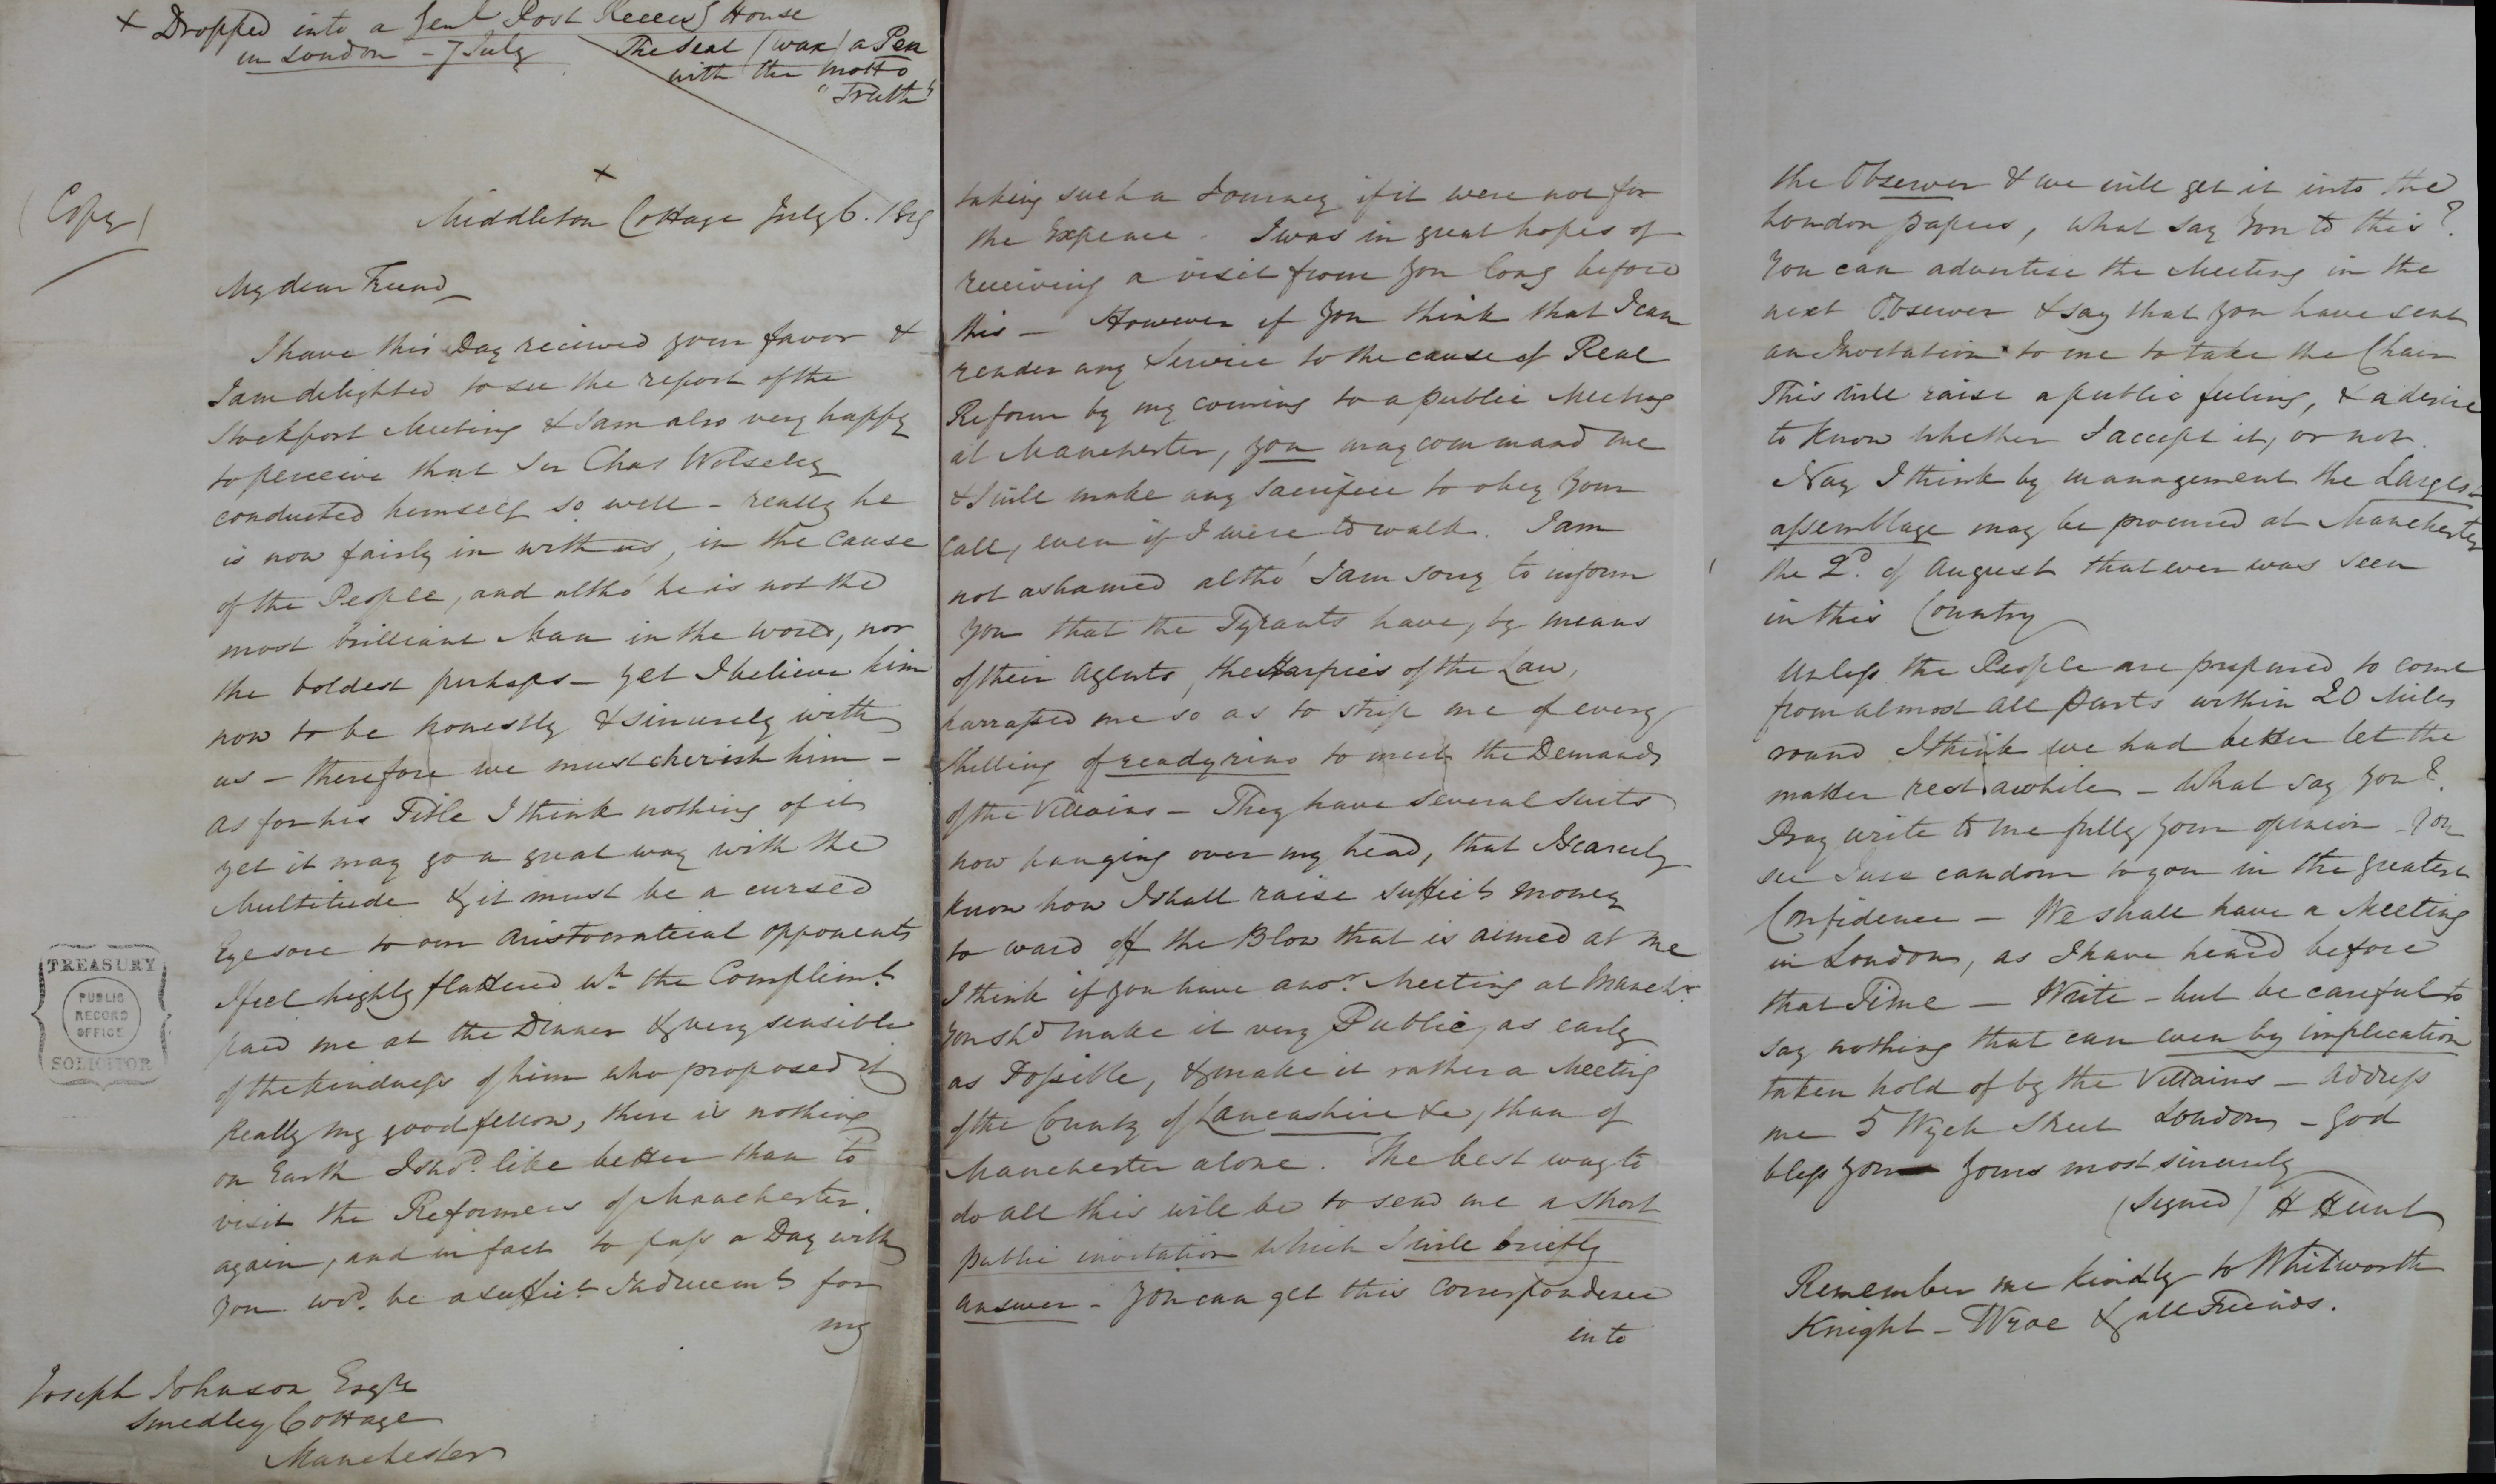 + Dropped into a Genl Post Receivg House
in London - 7 July
The Seal (wax) a Pen
with the Motto
"Truth"
(Copy)
+
Middleton Cottage July 6. 1819
My dear Friend
I have this Day received your favor &
I am delighted to see the report of the
Stockport Meeting & I am also very happy
to perceive that Sir Chas Wolseley
conducted himself so well - really he
is now fairly in with us, in the cause
of the People, and altho' he is not the
most brilliant Man in the World, nor
the boldest perhaps - yet I believe him
now to be honestly & sincerely with
us - therefore we must cherish him -
as for his Title I think nothing of it
yet it may go a great way with the
Multitude & it must be a cursed
Eye sore to our Aristocratical opponents
I feel highly flattered wh. the Complimt.
paid me at the Dinner & very sensible
of the kindness of him who proposed it
Really my good fellow, there is nothing
on Earth I shod. like better than to
visit the Reformers of Manchester.
again, and in fact to pass a Day with
you wod. be a suffict. Inducement for
my
Joseph Johnson Esqre
Smedley Cottage
Manchester
TREASURY
PUBLIC
RECORD
OFFICE
SOLICITOR
taking such a Journey if it were not for
the Expence. I was in great hopes of
receiving a visit from you long before
this - However if you think that I can
render any Service to the cause of Real
Reform by my coming to a public Meeting
at Manchester, you may command me
& I will make any sacrifice to obey your
call, even if I were to walk. I am
not ashamed altho' I am sorry to inform
you that the Tyrants have, by means
of their Agents, the Harpies of the Law,
harrassed me so as to strip me of every
shilling of ready rino to meet the Demands
of the Villains - They have several suits
now hanging over my head, that I scarcely
know how I shall raise suffict money
to ward off the Blow that is aimed at me
I think if you have anor. Meeting at Manchr.
you shd make it very Public, as early
as Possible, & make it rather a Meeting
of the County of Lancashire &c, than of
Manchester alone. The best way to
do all this will be to send me a short
public invitation which I will briefly
answer - you can get this Correspondence
into
the Observer & we will get it into the
London papers, what say you to this?
You can advertise the Meeting in the
next Observer & say that you have sent
an Invitation to me to take the Chair
This will raise a public feeling, & a desire
to know whether I accept it, or not.
Nay I think by management the Largest
assemblage may be procured at Manchester
the 2d. of August that ever was seen
in this Country
Unless the People are prepared to come
from almost all Parts within 20 Miles
round I think we had better let the
matter rest awhile - What say you?
Pray write to me fully your opinion - You
see I use candour to you in the greatest
Confidence - We shall have a Meeting
in London, as I have heard before
that Time - Write - but be careful to
say nothing that can even by implication
taken hold of by the Villains - Address
me 5 Wych Street London - God
bless you yours most sincerely
(Signed) H Hunt
Remember me kindly to Whitworth
Knight - Wroe & all Friends.